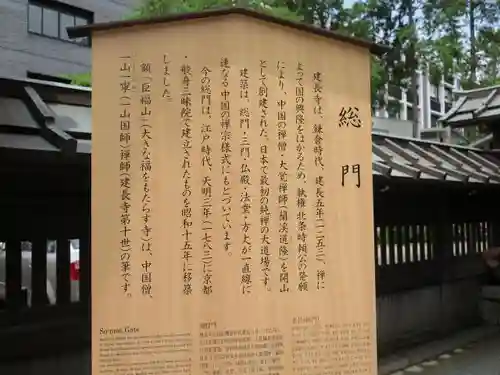 総門
建長寺は、鎌倉時代、建長五年(一二五三)、禅に
よって国の興隆をはかるため、執権 北条時頼公の発願
により、中国の禅僧・大覚禅師(蘭渓道隆)を開山
として創建された、日本で最初の純禅の大道場です。
建築は、総門・三門・仏殿・法堂・方丈が一直線に
連なる中国の禅宗様式にもとづいています。
今の総門は、江戸時代、天明三年(一七八三)に京都
・般舟三昧院で建立されたものを昭和十五年に移築
しました。
額「巨福山」(大きな福をもたらす寺)は、中国僧、
一山一寧(一山国師)禅師(建長寺第十世)の筆です。
So-mon Gate